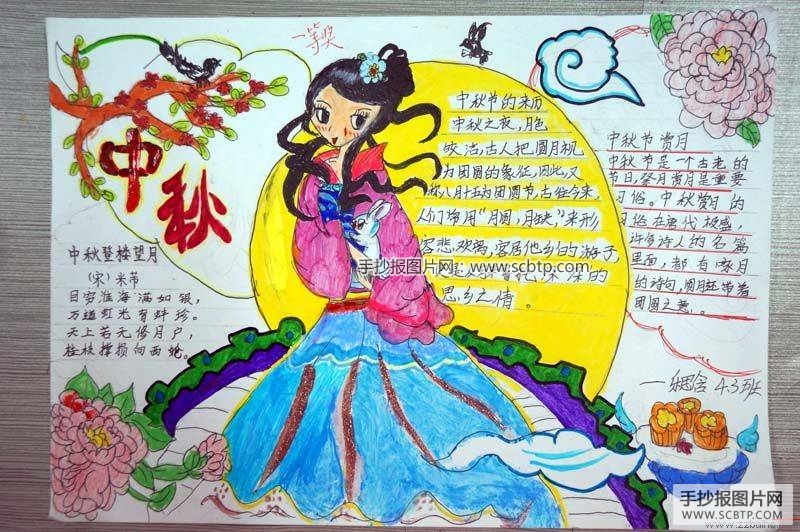 一等奖
中秋
中秋登楼望月
(宋)米芾
目穷淮海满如银,
万道虹光育蚌珍。
天上若无修月户,
桂枝撑损向西轮。
中秋节的来历
中秋之夜,月色
皎洁,古人把圆月视
为团圆的象征,因此,又
称八月十五为团圆节,古往今来,
人们常用“月圆,月缺”,来形
容悲欢离,客居他乡的游子,
深深的
思乡之情。
中秋节赏月
中秋节是一个古老的
节日,祭月赏月是重要
习俗。中秋赏月的
习俗在唐代极盛,
许多诗人的名篇
里面,都有咏月
的诗句,
团圆之意。
手抄报图片网:www.scbtp.com
4.3班
手抄报图片网
WWW.SCBTP.COM